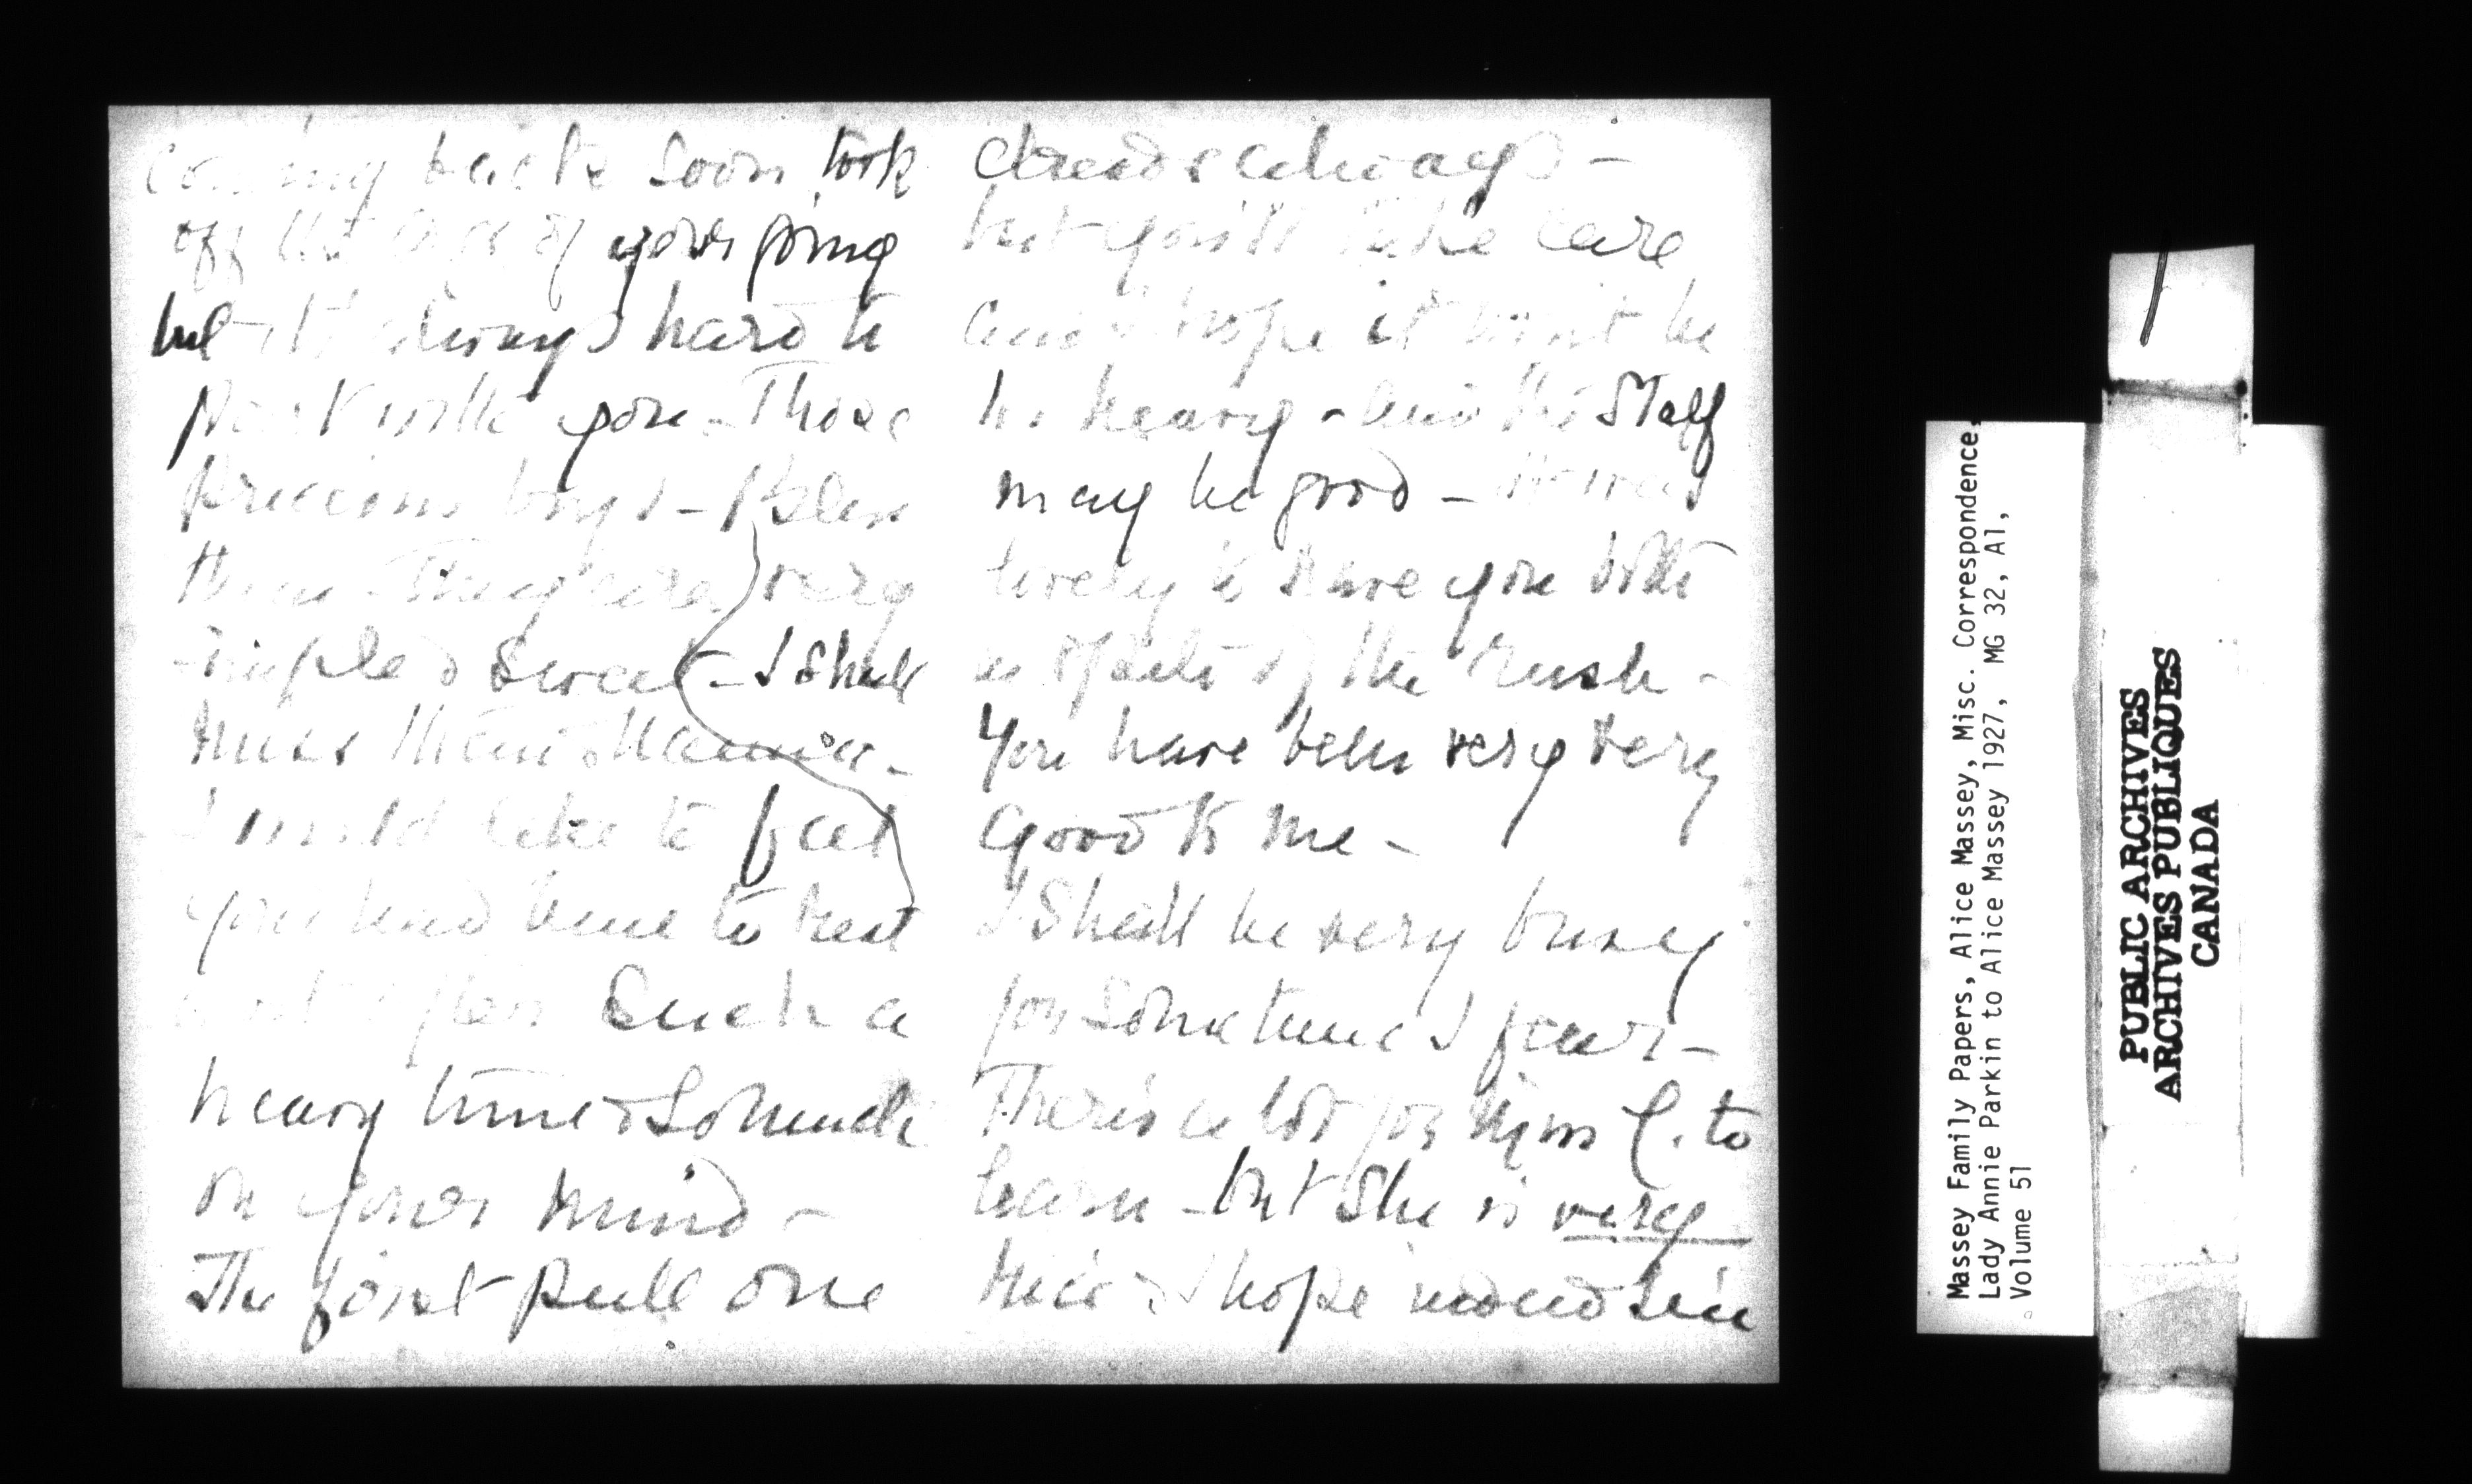 coming back soon took
off the of your going
but it's always hard to
part with you - Those
precious boys - Bless
them - They are very
simple & sweet - I shall
miss them
I would like to feel
you had time to rest
after such a
heavy time & so much
on your mind -
The first pull one
dreads always -
but you'll take care
and hope it won't be
too heavy - and the staff
may be good - It was
lovely to have you both
in spite of the rush -
You have been very very
good to me -
I shall be very busy
for some time I fear -
There's a lot for to
learn - but she is very
nice & I hope
Massey Family Papers, Alice Massey, Misc. Correspondence,
Lady Annie Parkin to Alice Massey 1927, MG 32, A1,
Volume 51
PUBLIC ARCHIVES
ARCHIVES PUBLIQUES
CANADA